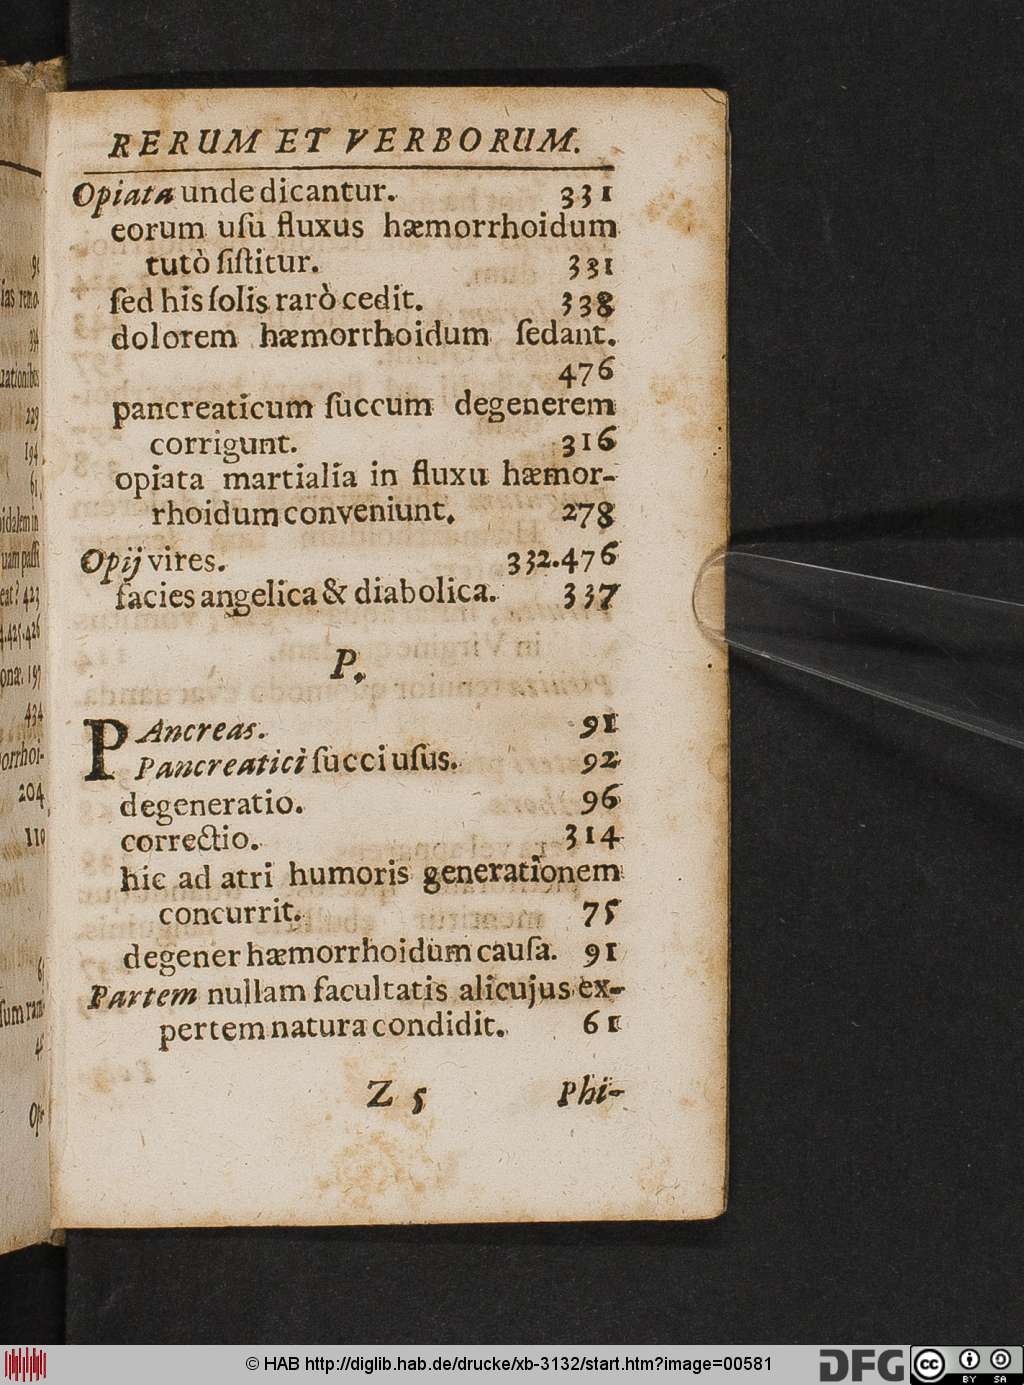 RERUM ET VERBORUM.
Opiata unde dicantur. 331
eorum uſu fluxus hæmorrhoidum
tutò ſiſtitur. 331
ſed his ſolis rarò cedit. 338
dolorem hæmorrhoidum ſedant.
476
pancreaticum ſuccum degenerem
corrigunt. 316
opiata martialia in fluxu hæmor-
rhoidum conveniunt. 278
Opij vires. 332.476
facies angelica & diabolica. 337
P.
PAncreas. 91
Pancreatici ſucci uſus. 92
degeneratio. 96
correctio. 314
hic ad atri humoris generationem
concurrit. 75
degener hæmorrhoidum cauſa. 91
Partem nullam facultatis alicujus ex-
pertem natura condidit. 61
Z 5 Phi-
91
394
uationibus
229
194
61.
uam paſſi
423
425.426
197
434
orrhoi-
204
110
© HAB http://diglib.hab.de/drucke/xb-3132/start.htm?image=00581
DFG cc BY SA